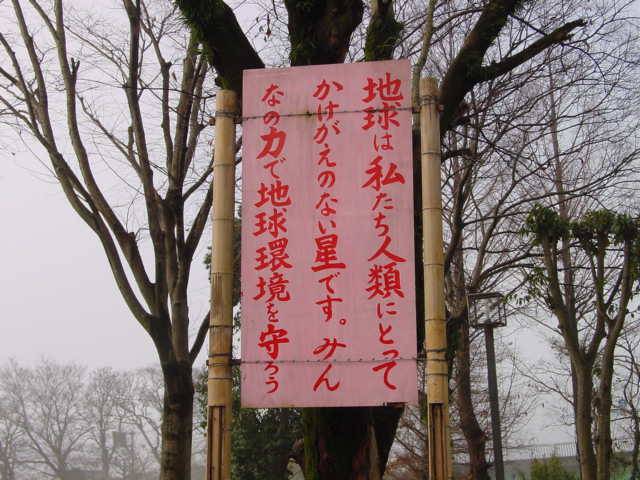 地球は私たち人類にとって
かけがえのない星です。みん
なの力で地球環境を守ろう